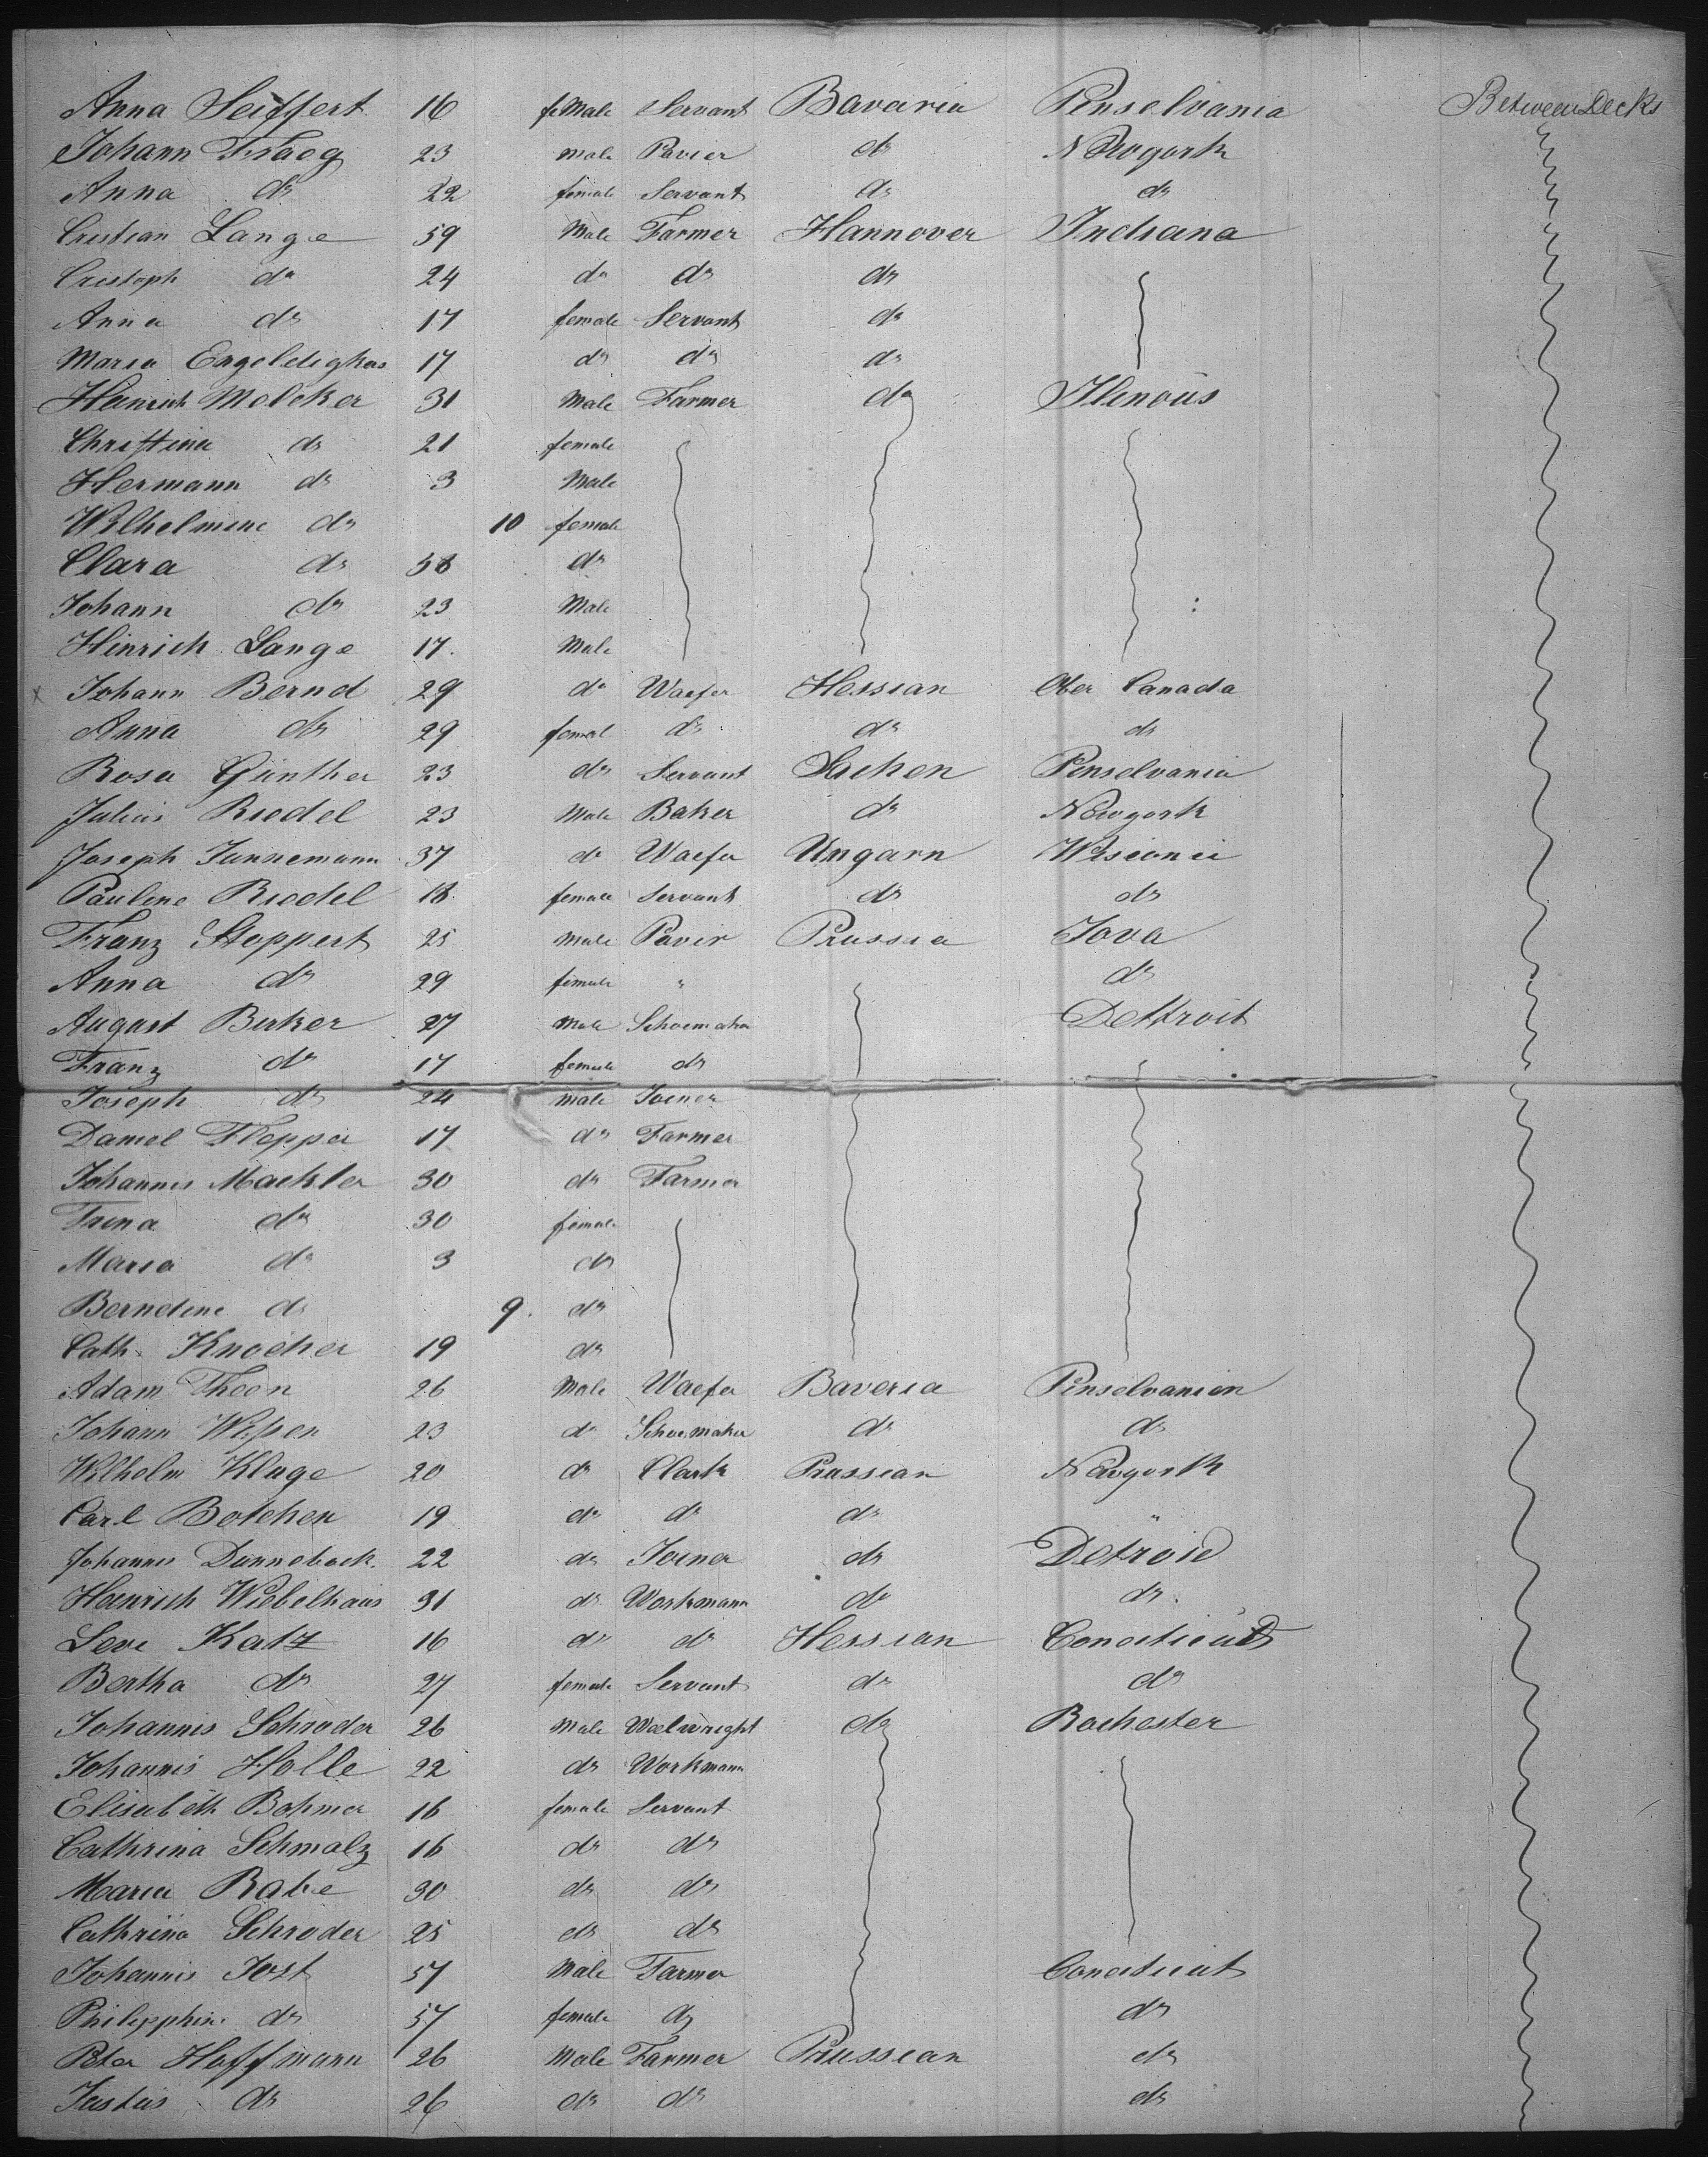 Anna Seiffert 16 female Servant Bavaria Penselvania Between Decks
Johann Fraeg 23 male Pavier do Newyork
Anna do 22 female Servant do do
Cristian Lange 59 Male Farmer Hannover Indiana
Cristoph do 24 do do do
Anna do 17 female Servant do
Maria 17 do do do
Heinrich Molcker 31 Male Farmer do Ilinoüs
Christina do 21 female
Hermann do 3 Male
Wilhelmine do 10 female
Clara do 58 do
Johann do 23 Male
Hinrich Lange 17. Male
x Johann Bernd 29 do Waefer Hessian Ober Canada
Anna do 29 femal do do do
Rosa Günther 23 do Servant Sachen Penselvania
Julius Riedel 23 Male Baker do Newyork
Joseph Junnemann 37 do Waefer Ungarn
Pauline Riedel 18 female Servant do do
Franz Stoppert 25 Male Pavir Prussia Jova
Anna do 29 female " do
August Burker 27 Male Schoemaker Dettroit
Franz do 17 female do
Joseph do 24 male Joiner
Daniel Flepper 17 do Farmer
Johannes Maekler 30 do Farmer
Trina do 30 female
Maria do 3 do
Berndine do 9. do
Cath. Knocher 19 do
Adam Theon 26 Male Waefer Baveria Penselvanien
Johann Wissen 23 do Schoemaker do do
Wilhelm Kluge 20 do Clark Prussian Newyork
Carl Botchen 19 do do do "
Johannes Dunneback. 22 do Joiner do Detroid
Heinrich Wiebelhaus 31 do Workmann do do
Levi Katz 16 do do Hessian Conecticut
Bertha do 27 female Servant do do
Johannis Schroder 26 Male Waelwright do Rochester
Johannis Holle 22 do Workmann
Elisabeth Bohmer 16 female Servant
Cathrina Schmalz 16 do do
Maria Rabe 30 do do
Cathrina Schroder 25 do do
Johannis Jost 57 Male Farmer Conecticut
Philipphine do 57 female do do
Peter Hoffmann 26 Male Farmer Prussian do
Justus do 26 do do do